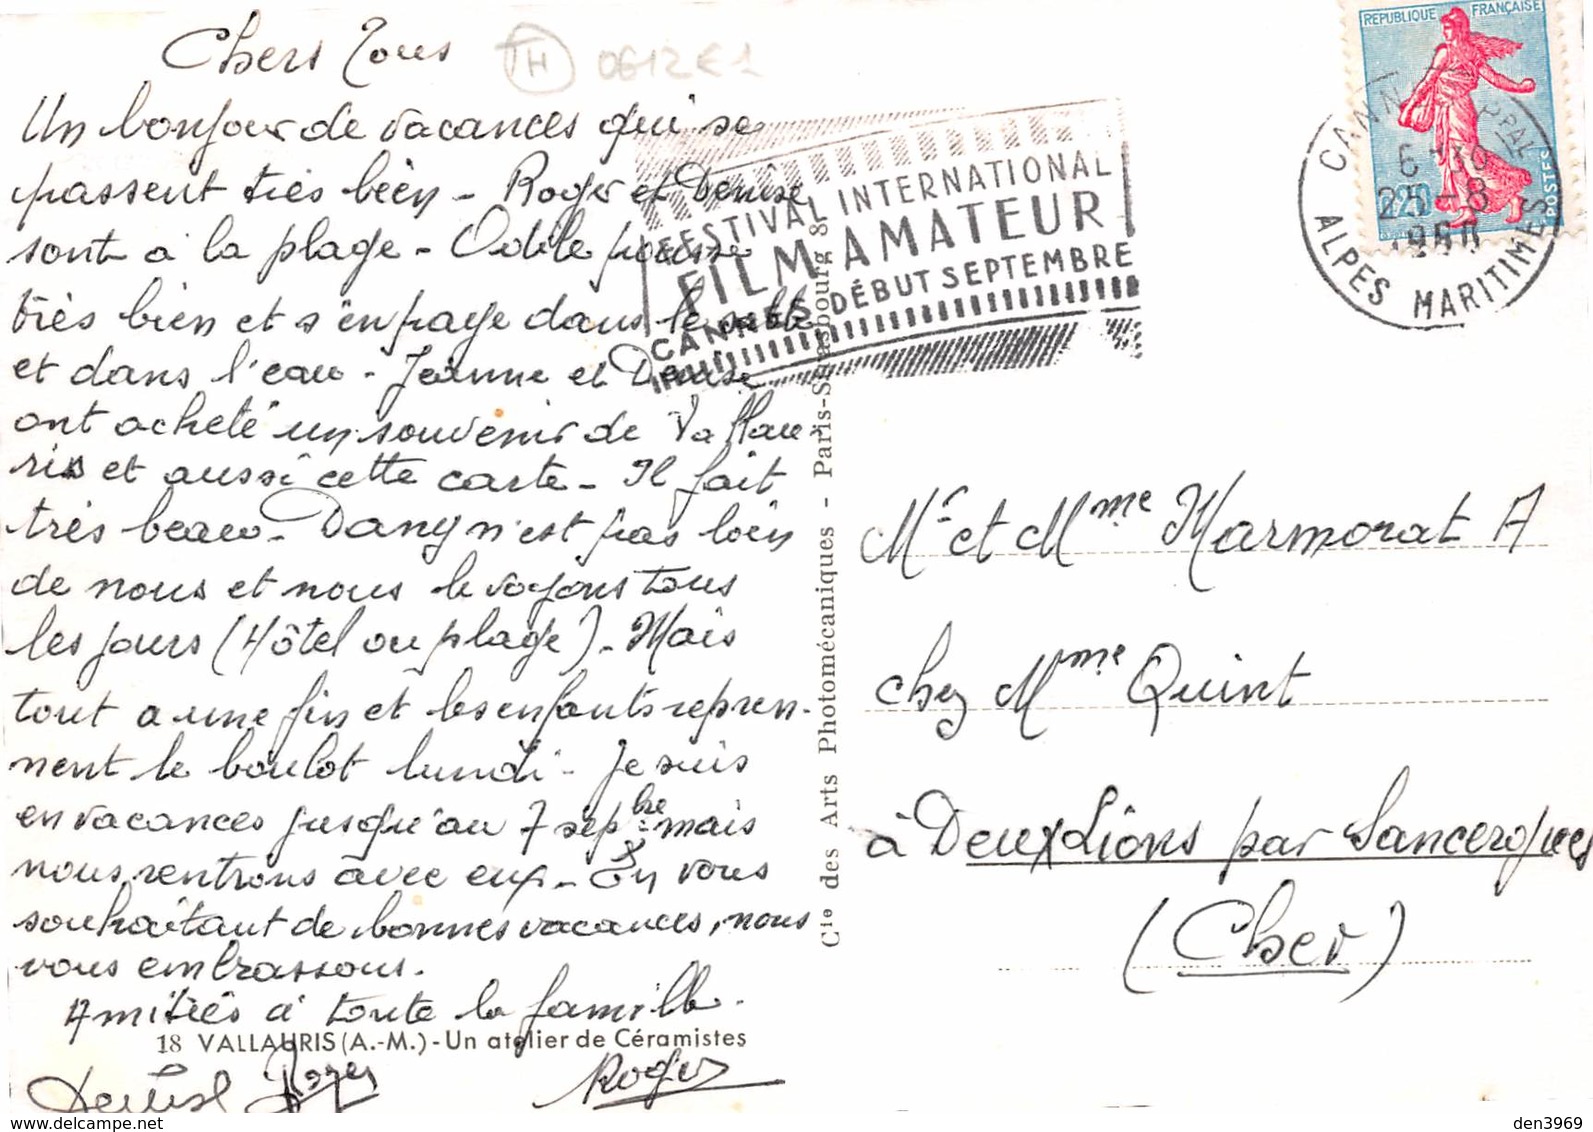 Chers Tous
TH 0612E1
Un bonjour de vacances qui se
passent très bien - Roger et Denise
sont à la plage - Odile pousse
très bien et s'en paye dans le sable
et dans l'eau - Jeanne et Denise
ont acheté un souvenir de Vallau-
ris et aussi cette carte - Il fait
très beau - Dany n'est pas loin
de nous et nous le voyons tous
les jours (Hôtel ou plage) - Mais
tout a une fin et les enfants repren-
nent le boulot lundi - Je suis
en vacances jusqu'au 7 sepbre mais
nous rentrons avec eux - En vous
souhaitant de bonnes vacances, nous
vous embrassons.
Amitiés à toute la famille.
18 VALLAURIS (A.-M.) - Un atelier de Céramistes
Denise Roger
Cie des Arts Photomécaniques - Paris-Strasbourg 8
FESTIVAL INTERNATIONAL
FILM AMATEUR
CANNES DÉBUT SEPTEMBRE
REPUBLIQUE FRANÇAISE
0,20
POSTES
CANNES PPAL
25-8
1960
ALPES MARITIMES
Mr et Mme Marmorat A
chez Mme Quint
à Deux Lions par Sancergues
(Cher)
den3969